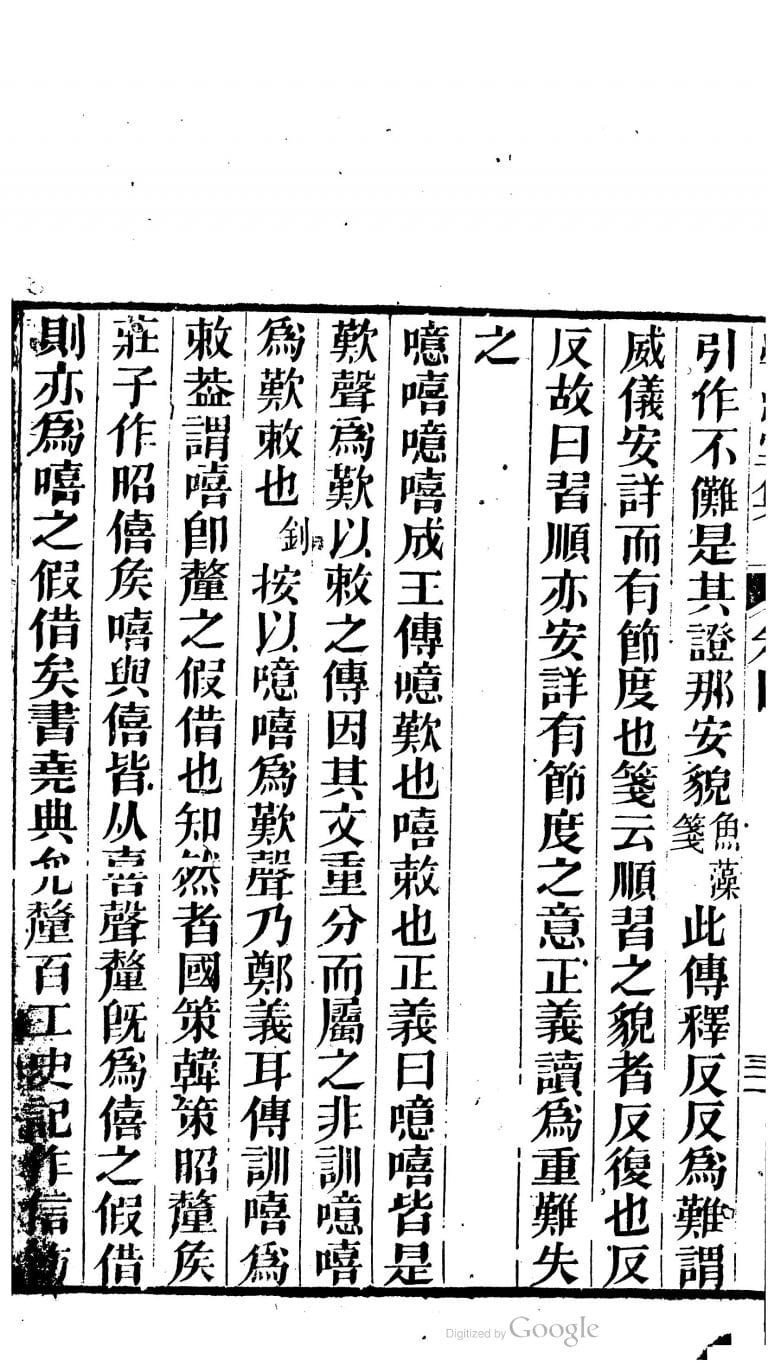 引作不儺是其證那安貌魚藻箋此傳釋反反爲難謂
威儀安詳而有節度也箋云順習之貌者反復也反
反故曰習順亦安詳有節度之意正義讀爲重難失
之
噫嘻噫嘻成王傳噫歎也嘻敕也正義曰噫嘻皆是
歎聲爲歎以敕之傳因其文重分而屬之非訓噫嘻
爲歎敕也 釗按以噫嘻爲歎聲乃鄭義耳傳訓嘻爲
敕葢謂嘻卽釐之假借也知然者國策韓策昭釐矦
莊子作昭僖矦嘻與僖皆从喜聲釐旣爲僖之假借
則亦爲嘻之假借矣書堯典允釐百工史記作信飭
Digitized by Google